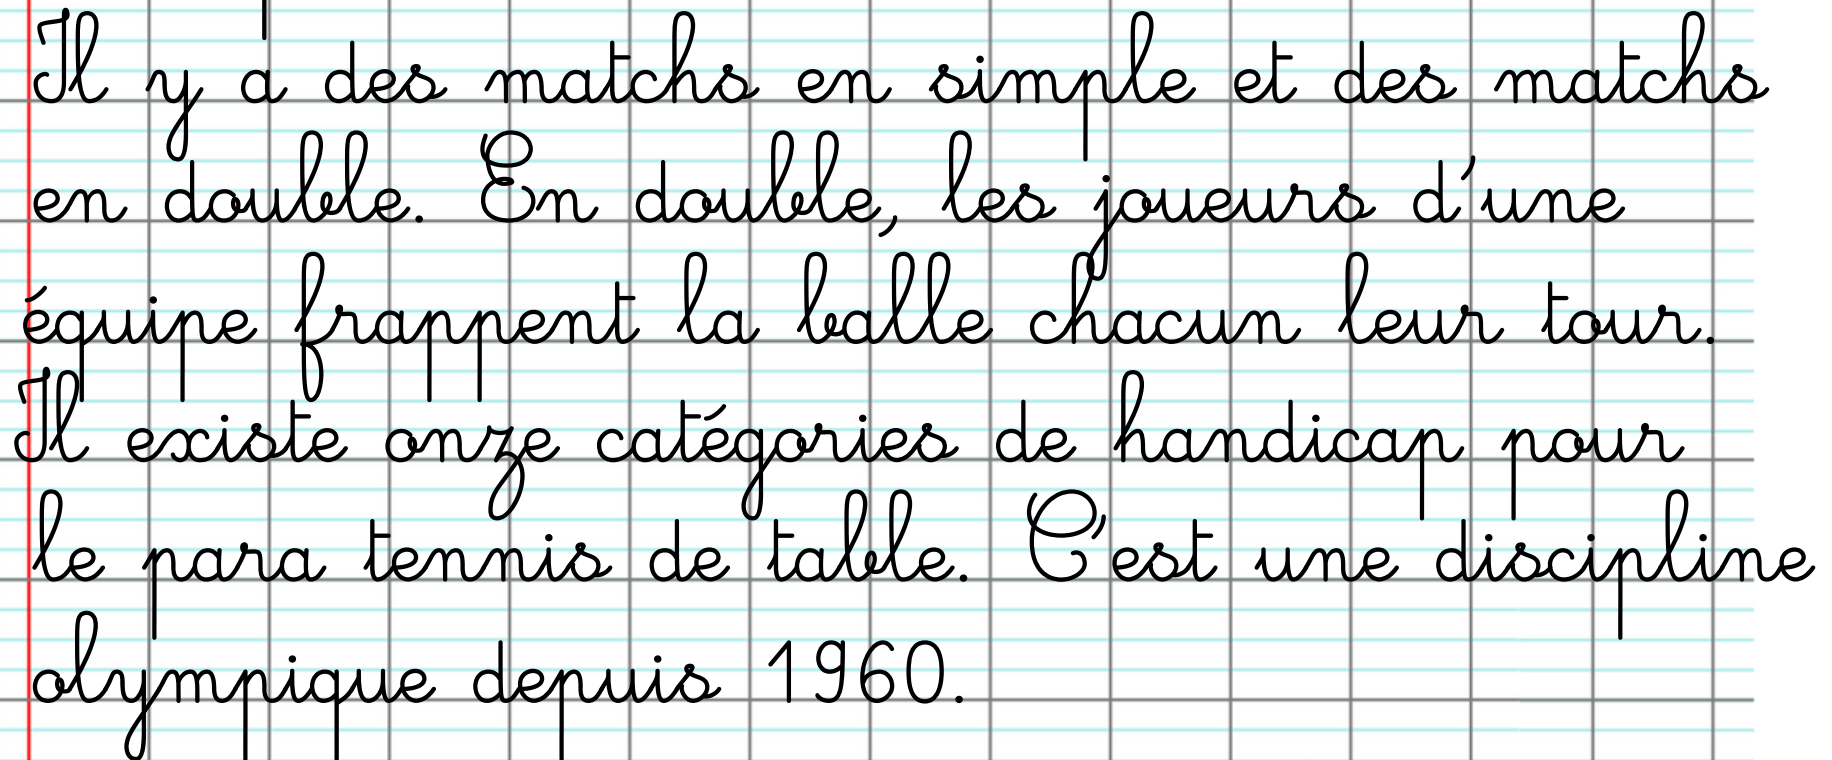 Il y a des matchs en simple et des matchs
en double. En double, les joueurs d'une
équipe frappent la balle chacun leur tour.
Il existe onze catégories de handicap pour
le para tennis de table. C'est une discipline
olympique depuis 1960.